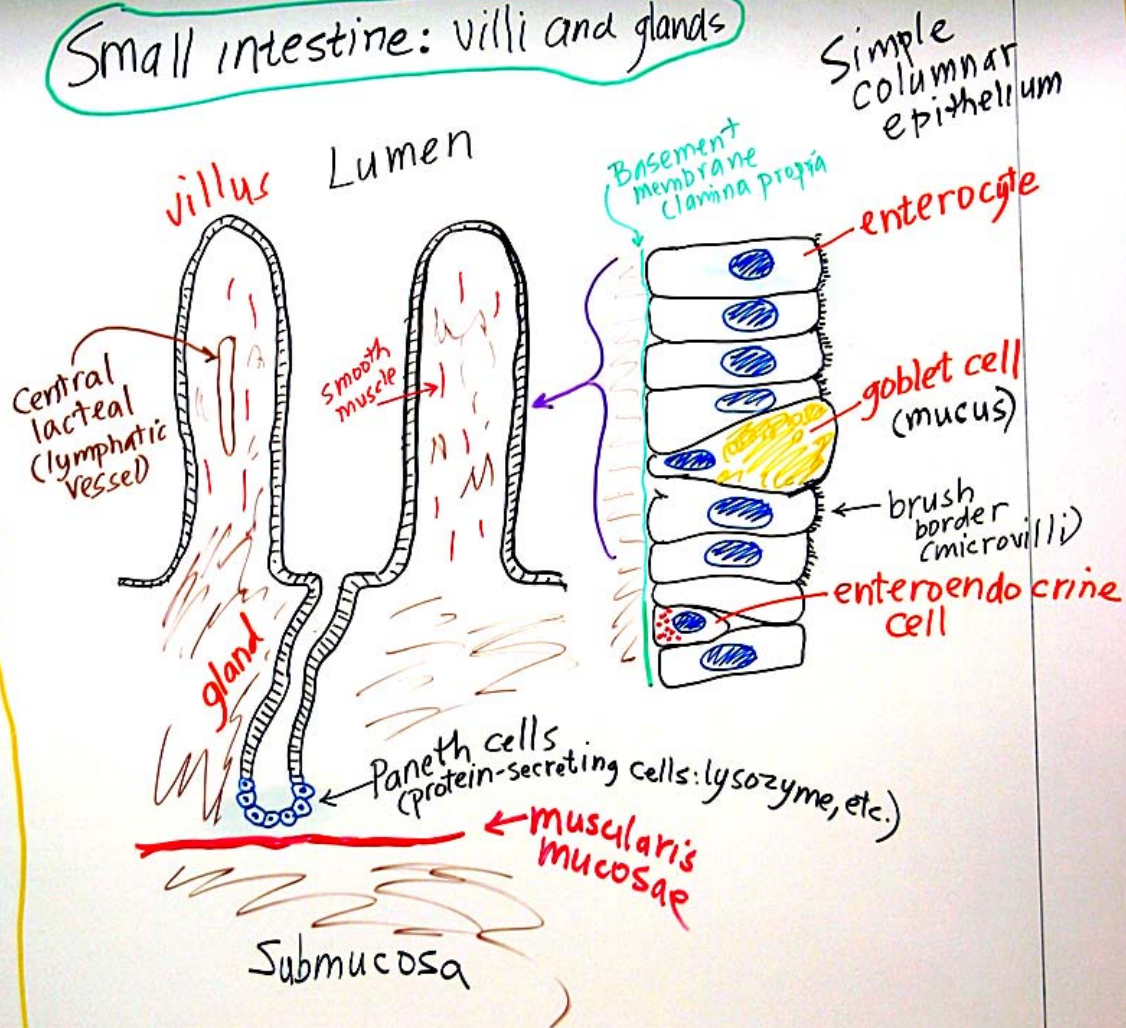 Small intestine: villi and glands
Simple
columnar
epithelium
Lumen
villus
Basement
membrane
(lamina propria
enterocyte
Central
lacteal
(lymphatic
vessel)
smooth
muscle
goblet cell
(mucus)
brush
border
(microvilli)
enteroendocrine
cell
gland
Paneth cells
(protein-secreting cells: lysozyme, etc.)
muscularis
mucosae
Submucosa